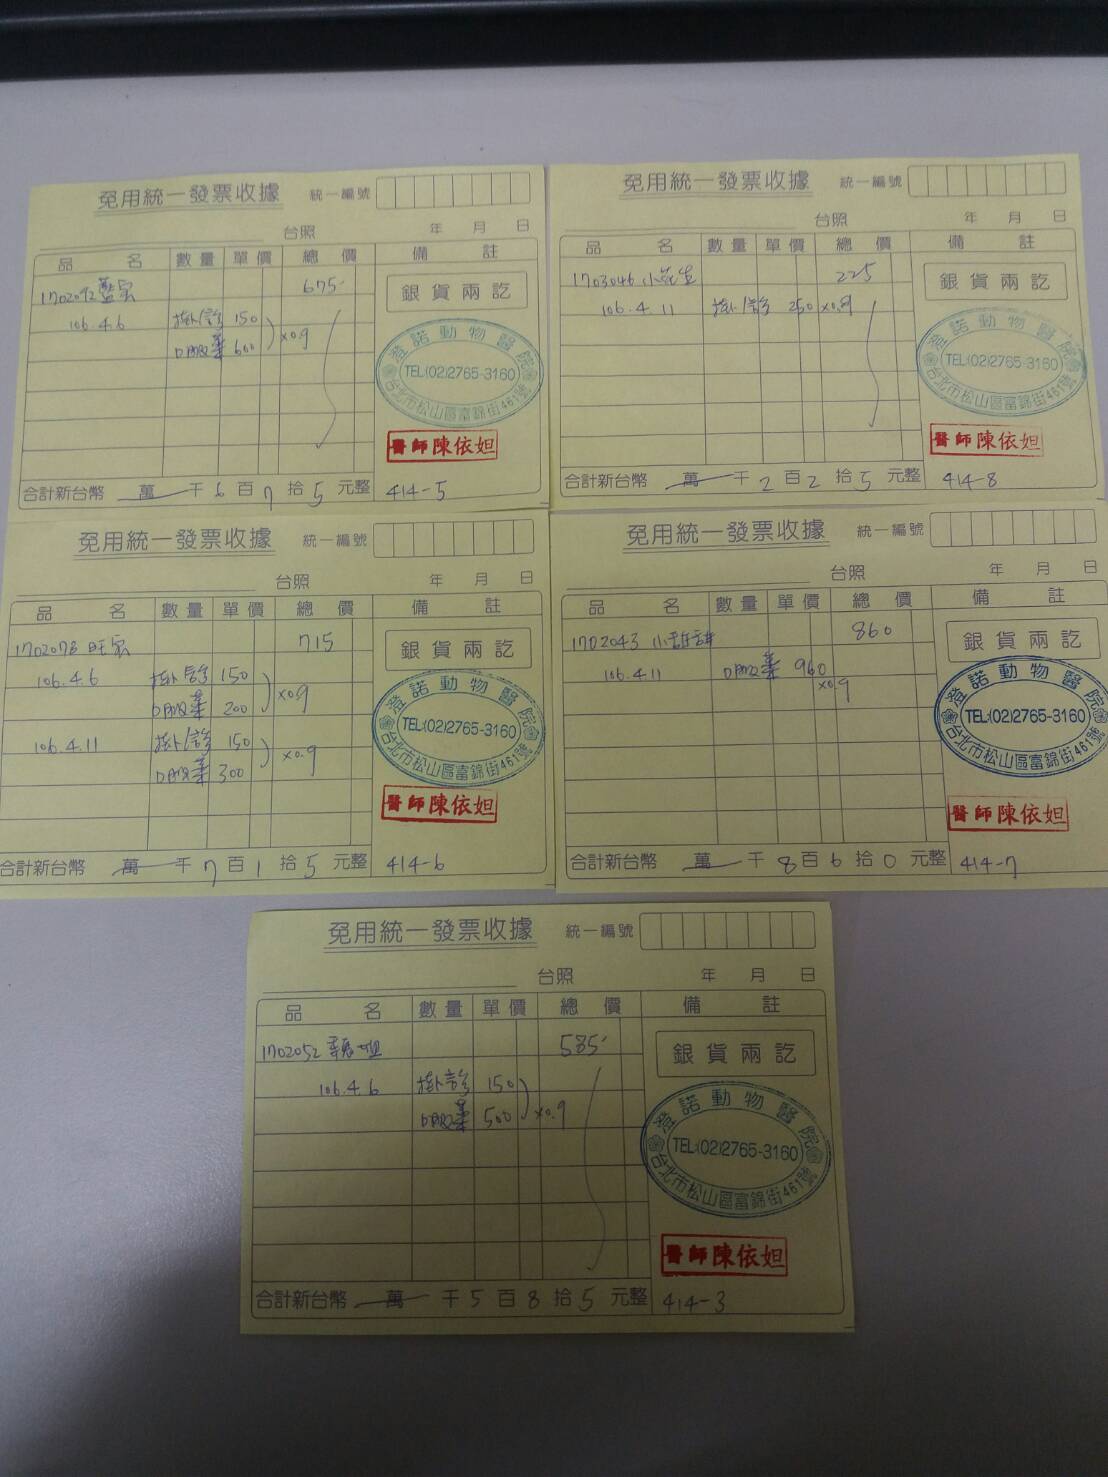 免用統一發票收據 統一編號
台照 年 月 日
品名 數量 單價 總價 備註
1702092 藍宗 675
106.4.6 掛/診 150
口服藥 600 ×0.9
銀貨兩訖
澄諾動物醫院
TEL:(02)2765-3160
台北市松山區富錦街461號
醫師陳依妲
合計新台幣 萬 千 6 百 7 拾 5 元整 414-5
免用統一發票收據 統一編號
台照 年 月 日
品名 數量 單價 總價 備註
1703046 小花生 225
106.4.11 掛/診 250 ×0.9
銀貨兩訖
澄諾動物醫院
TEL:(02)2765-3160
台北市松山區富錦街461號
醫師陳依妲
合計新台幣 萬 千 2 百 2 拾 5 元整 414-8
免用統一發票收據 統一編號
台照 年 月 日
品名 數量 單價 總價 備註
1702078 旺宗 715
106.4.6 掛/診 150
口服藥 200 ×0.9
106.4.11 掛/診 150
口服藥 300 ×0.9
銀貨兩訖
澄諾動物醫院
TEL:(02)2765-3160
台北市松山區富錦街461號
醫師陳依妲
合計新台幣 萬 千 7 百 1 拾 5 元整 414-6
免用統一發票收據 統一編號
台照 年 月 日
品名 數量 單價 總價 備註
1702043 860
106.4.11 口服藥 960
×0.9
銀貨兩訖
澄諾動物醫院
TEL:(02)2765-3160
台北市松山區富錦街461號
醫師陳依妲
合計新台幣 萬 千 8 百 6 拾 0 元整 414-7
免用統一發票收據 統一編號
台照 年 月 日
品名 數量 單價 總價 備註
1702052 585
106.4.6 掛診 150
口服藥 500 ×0.9
銀貨兩訖
澄諾動物醫院
TEL:(02)2765-3160
台北市松山區富錦街461號
醫師陳依妲
合計新台幣 萬 千 5 百 8 拾 5 元整 414-3